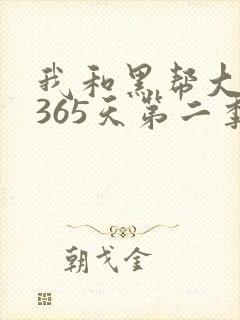 我和黑帮大
365天第二季
朝戈金